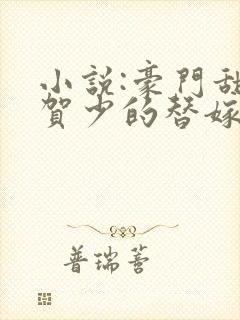 小說:豪門甜
賀少的替嫁
普瑞蒈